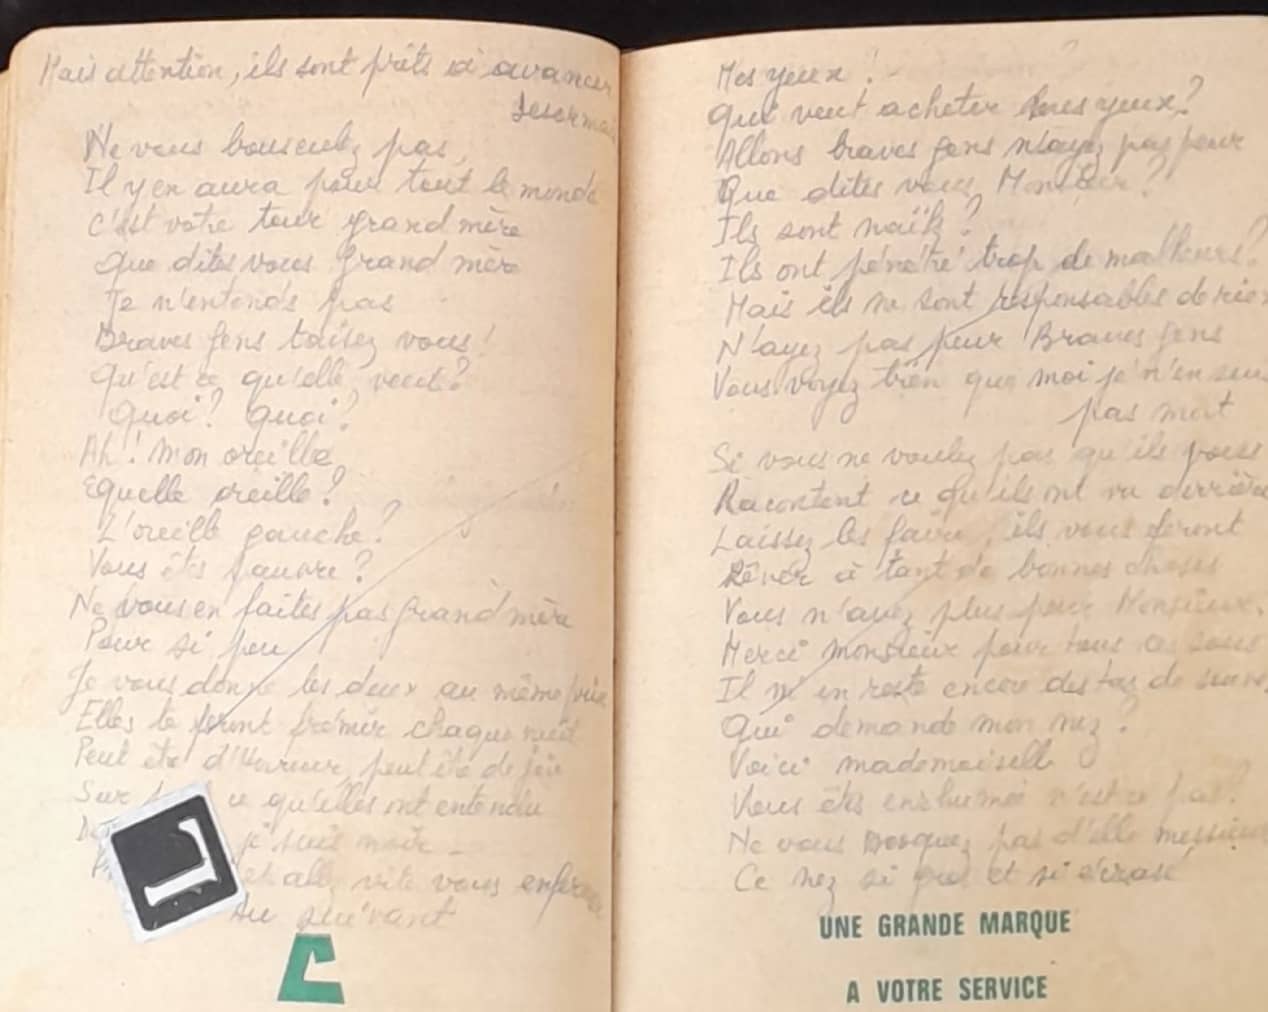 Mais attention, ils sont prêts à avancer
desormais
Ne vous bousculez pas,
Il y en aura pour tout le monde
C'est votre tour grand mère
Que dites vous grand mère
Je n'entends pas
Braves gens taisez vous!
Qu'est ce qu'elle veut?
Quoi? Quoi?
Ah! mon oreille
Equelle oreille?
L'oreille gauche?
Vous êtes pauvre?
Ne vous en faites pas grand mère
Pour si peu
Je vous donne les deux au même prix
Elles te feront frémir chaque nuit
Peut être d'Horreur, peut être de joie
Sur ce qu'elles ont entendu
je suis noir
et allez vite vous enfermer
Au suivant
L
C
Mes yeux!
Qui veut acheter mes yeux?
Allons braves gens n'ayez pas peur
Que dites vous Monsieur?
Ils sont
Ils ont pénétré trop de malheurs?
Mais ils ne sont responsables de rien
N'ayez pas peur Braves gens
Vous voyez bien que moi je n'en suis
pas mort
Si vous ne voulez pas qu'ils vous
Racontent ce qu'ils ont vu derrière
Laissez les faire, ils vous feront
Rêver à tant de bonnes choses
Vous n'avez plus peur Monsieur.
Merci monsieur pour tous ces sous
Il m'en reste encore des tas de
Qui demande mon nez?
Voici mademoiselle
Vous êtes enrhumée n'est ce pas?
Ne vous moquez pas d'elle messieurs
Ce nez si gros et si écrasé
UNE GRANDE MARQUE
A VOTRE SERVICE